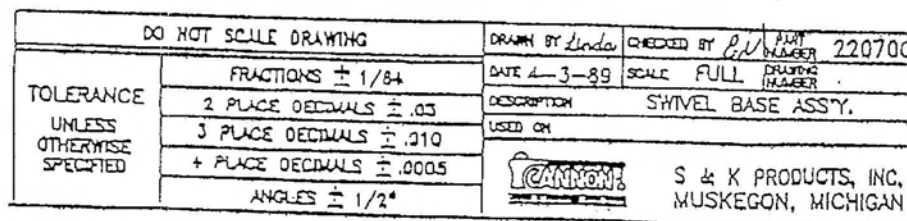 DO NOT SCALE DRAWING
TOLERANCE UNLESS OTHERWISE SPECIFIED
FRACTIONS ± 1/64
2 PLACE DECIMALS ± .03
3 PLACE DECIMALS ± .010
4 PLACE DECIMALS ± .0005
ANGLES ± 1/2°
DRAWN BY Linda CHECKED BY PART NUMBER 220700
DATE 4-3-89 SCALE FULL DRAWING NUMBER
DESCRIPTION SWIVEL BASE ASS'Y.
USED ON
CANNON
S & K PRODUCTS, INC.
MUSKEGON, MICHIGAN